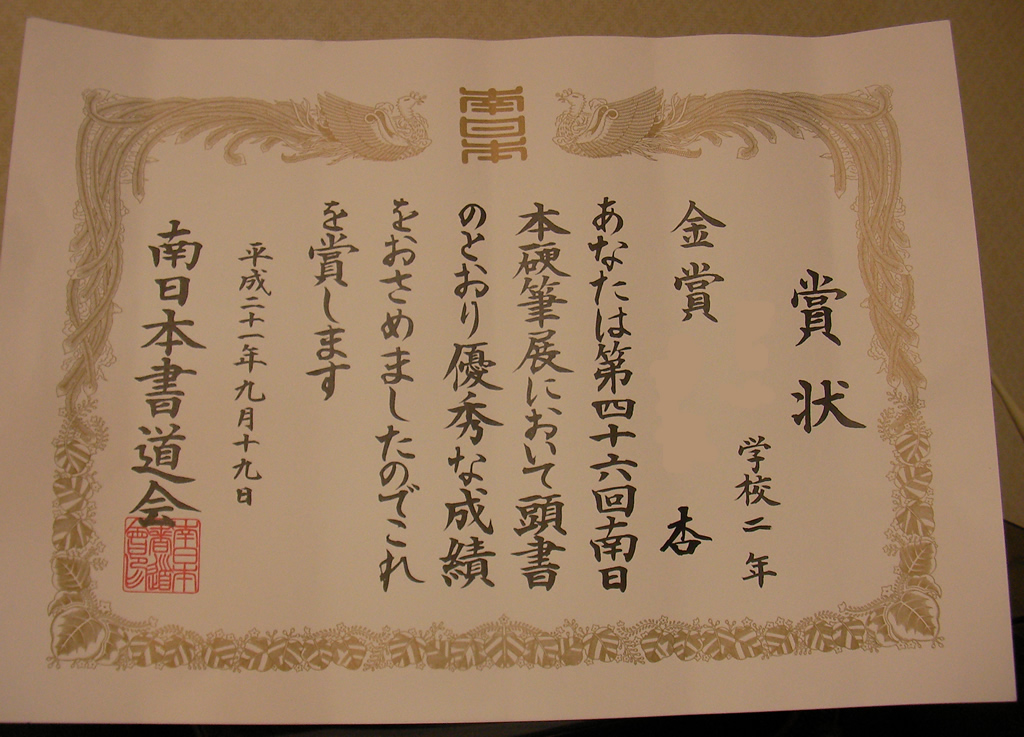 南日本
賞状
学校二年
金賞
杏
あなたは第四十六回南日
本硬筆展において頭書
のとおり優秀な成績
をおさめましたのでこれ
を賞します
平成二十一年九月十九日
南日本書道会
南日本
書道
會印